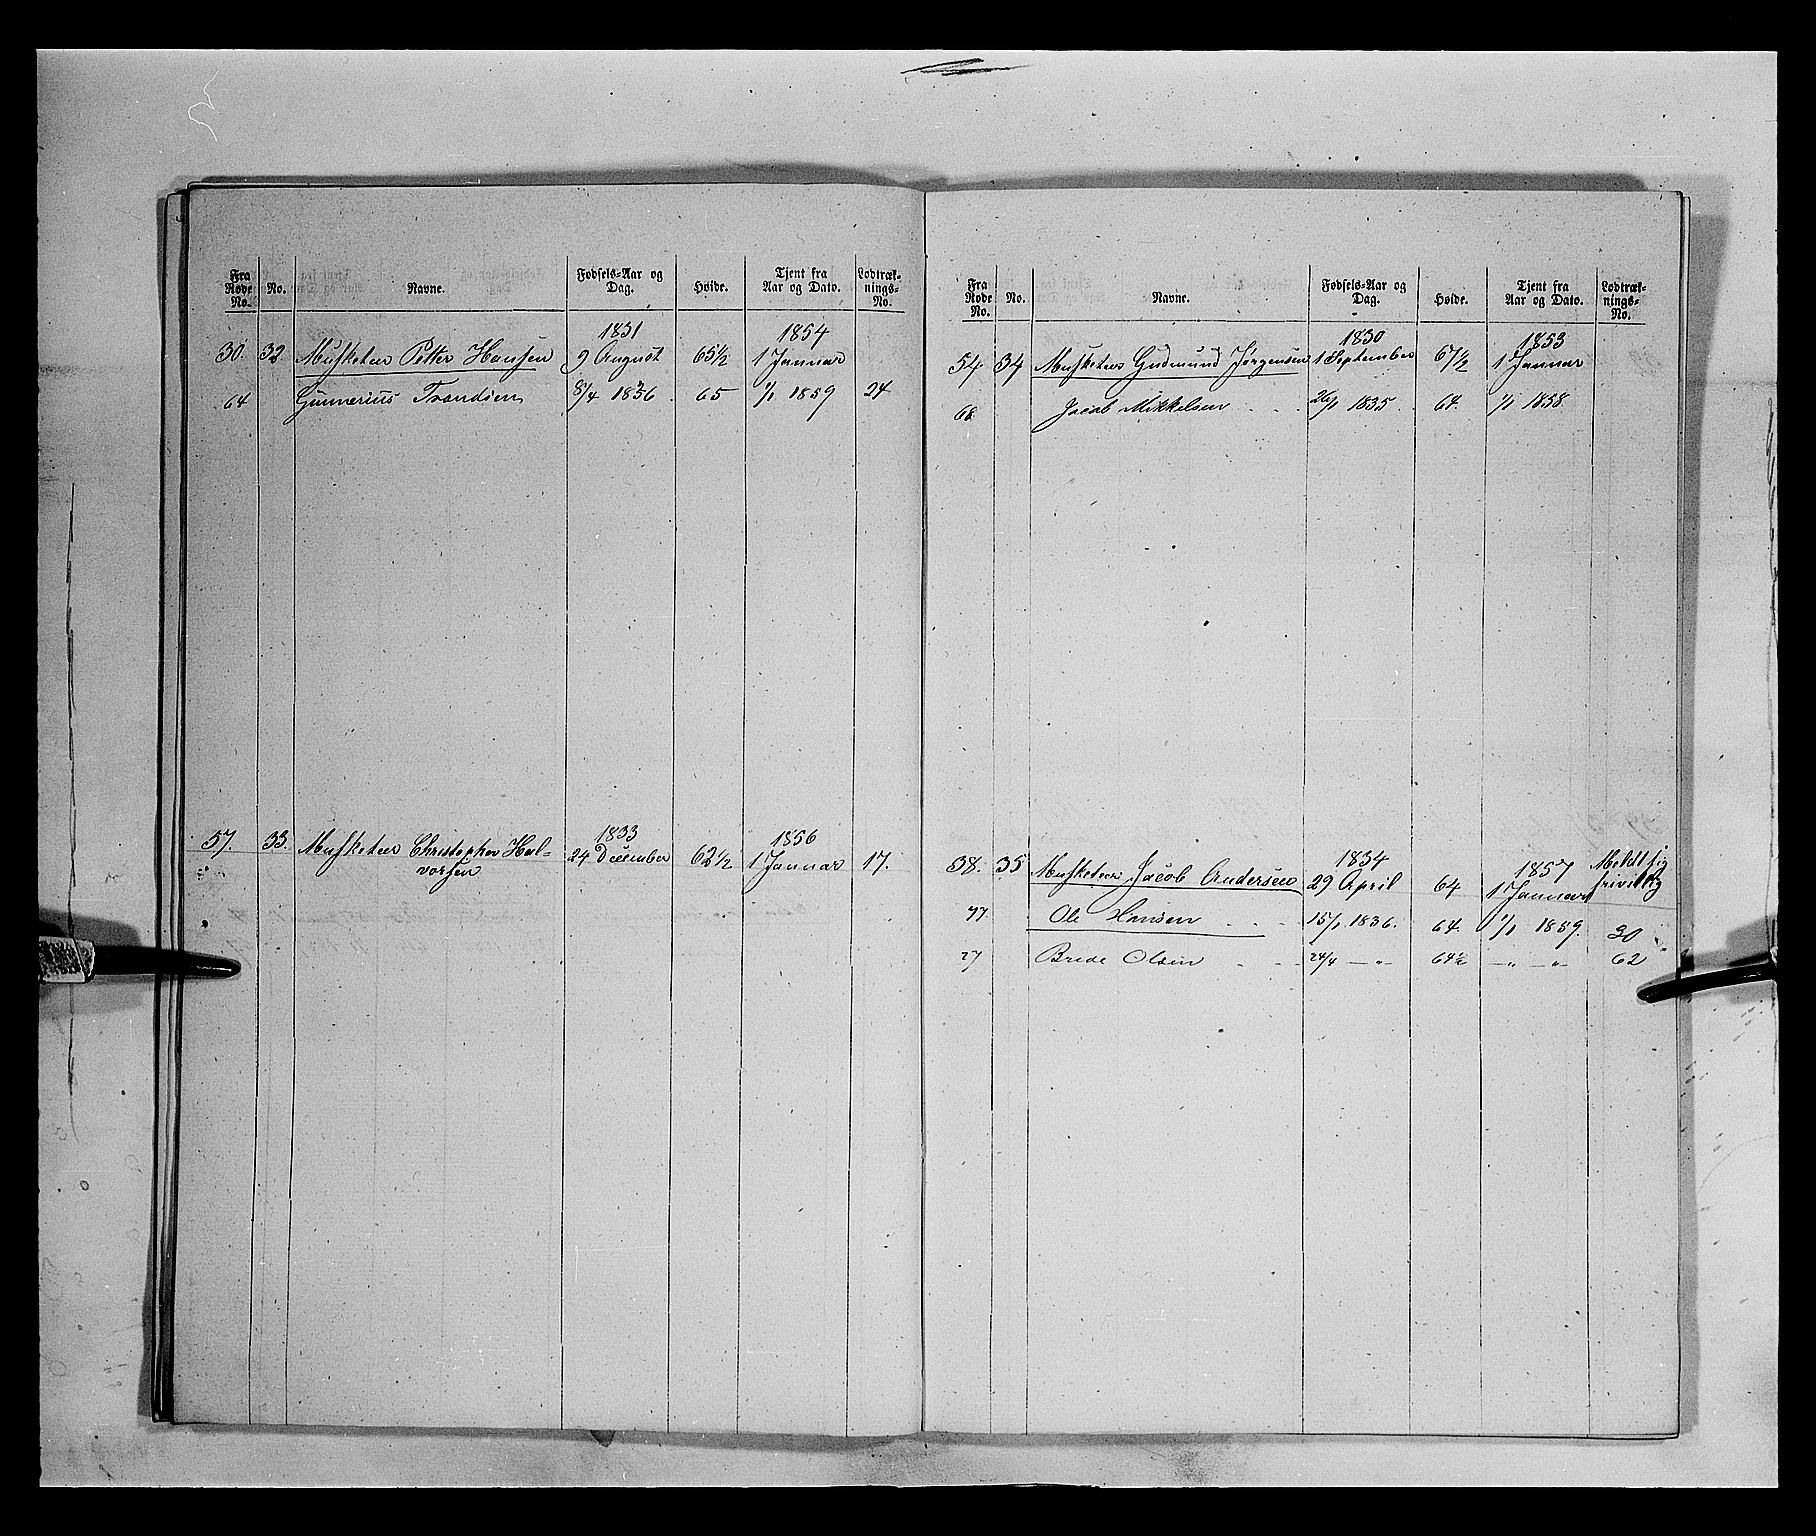 Fra Rode No. No. Navne. Fødsels-Aar og Dag. Høide. Tjent fra Aar og Dato. Lodtræk-nings-No.
1831 1854
30. 32. Musketeer Petter Hansen 9 August 65½ 1 Januar
64 Gunnerius Trondsen 8/4 1836 65 1/1 1859 24
1833 1856
57. 33. Musketeer Christopher Hal- 24 December 62½ 1 Januar 17.
vorsen
Fra Rode No. No. Navne. Fødsels-Aar og Dag. Høide. Tjent fra Aar og Dato. Lodtræk-nings-No.
1830 1853
54. 34 Musketeer Gudmund Jørgensen 1 September 67½ 1 Januar
68 Jacob Mikkelsen 26/1 1835 64. 1/1 1858.
1834 1857 Meldt sig
38. 35 Musketeer Jacob Andersen 29 April 64 1 Januar frivillig
77 Ole Hansen 15/1 1836. 64. 1/1 1859. 30
27 Brede Olsen 24/4 — „ — 64½ — „ — „ — 62